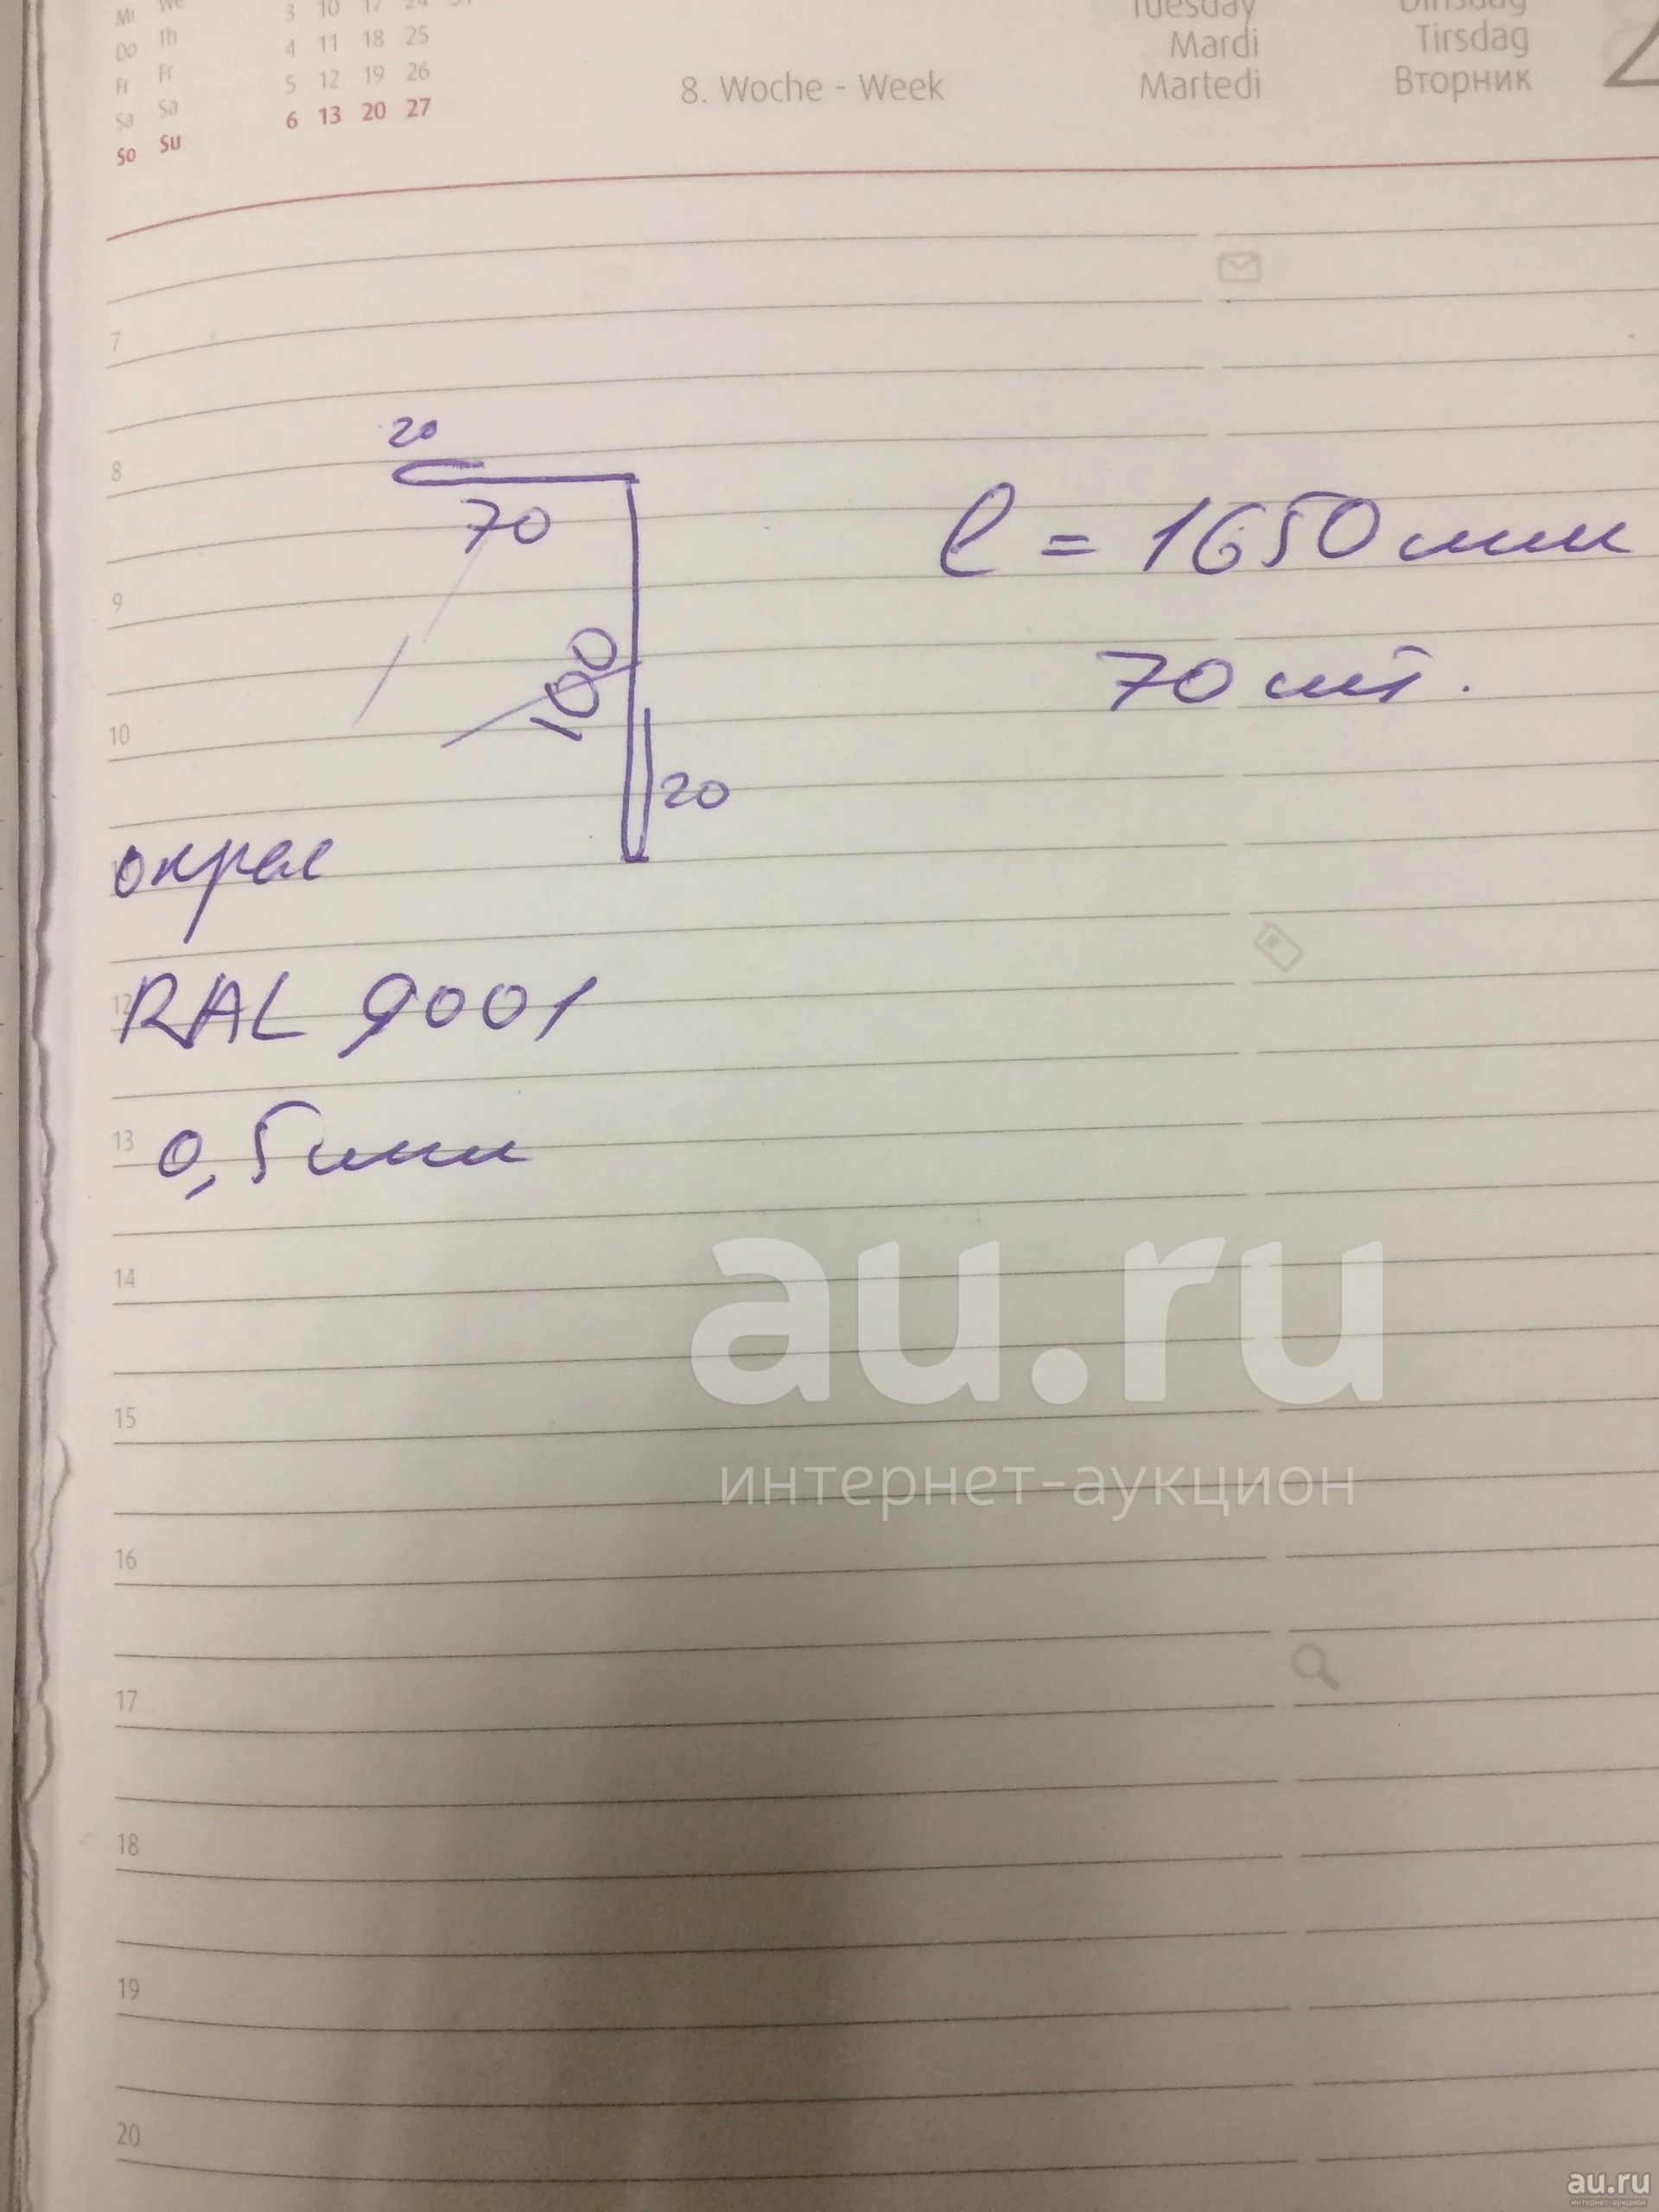 Mi We 3 10 17 24 31
Do Th 4 11 18 25
Fr Fr 5 12 19 26
Sa Sa 6 13 20 27
So Su
8. Woche - Week
Tuesday Dinsdag
Mardi Tirsdag
Martedi Вторник
7
20
8
70
l = 1650 мм
9
100
70 шт.
10
20
окрас
12
RAL 9001
13
0,5 мм
14
au.ru
15
интернет-аукцион
16
17
18
19
20
au.ru
интернет-аукцион